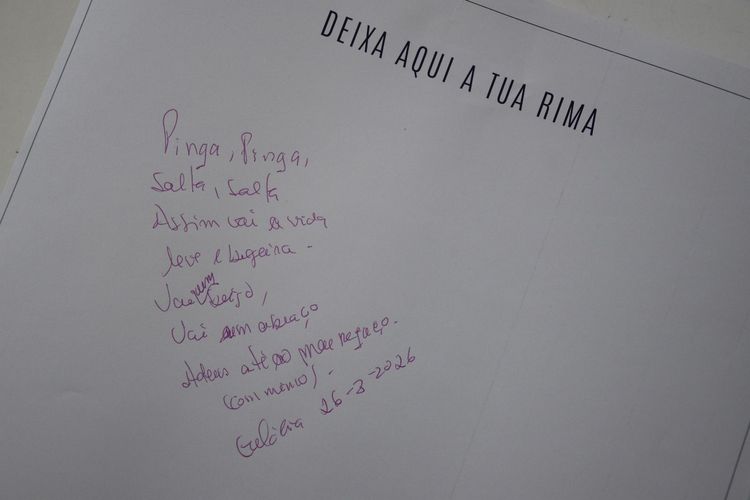 DEIXA AQUI A TUA RIMA
Pinga, Pinga,
Salta, Salta
Assim vai a vida
leve e ligeira.
Vai um beijo,
Vai um abraço
Adeus até ao
(com memo).
Eulália 26-3-2026